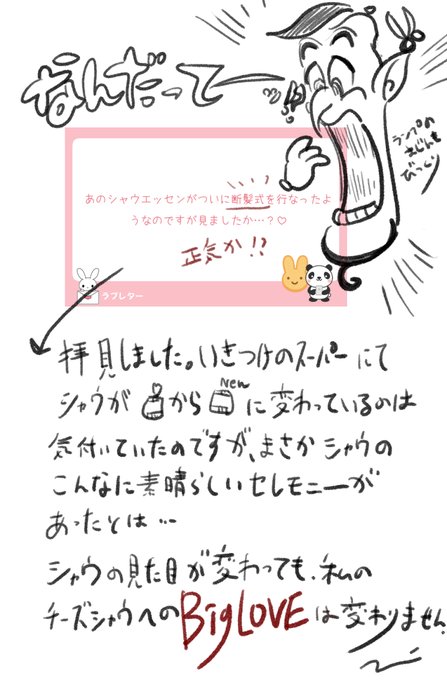 なんだってー
!?
ランプの
まじんも
びっくり
あのシャウエッセンがついに断髪式を行なったよ
うなのですが見ましたか…？♡
正気か!?
ラブレター
拝見しました。いきつけのスーパーにて
New
シャウが から に変わっているのは
気付いていたのですが、まさかシャウの
こんなに素晴らしいセレモニーが
あったとは…
シャウの見た目が変わっても、私の
チーズシャウへのBigLOVEは変わりません